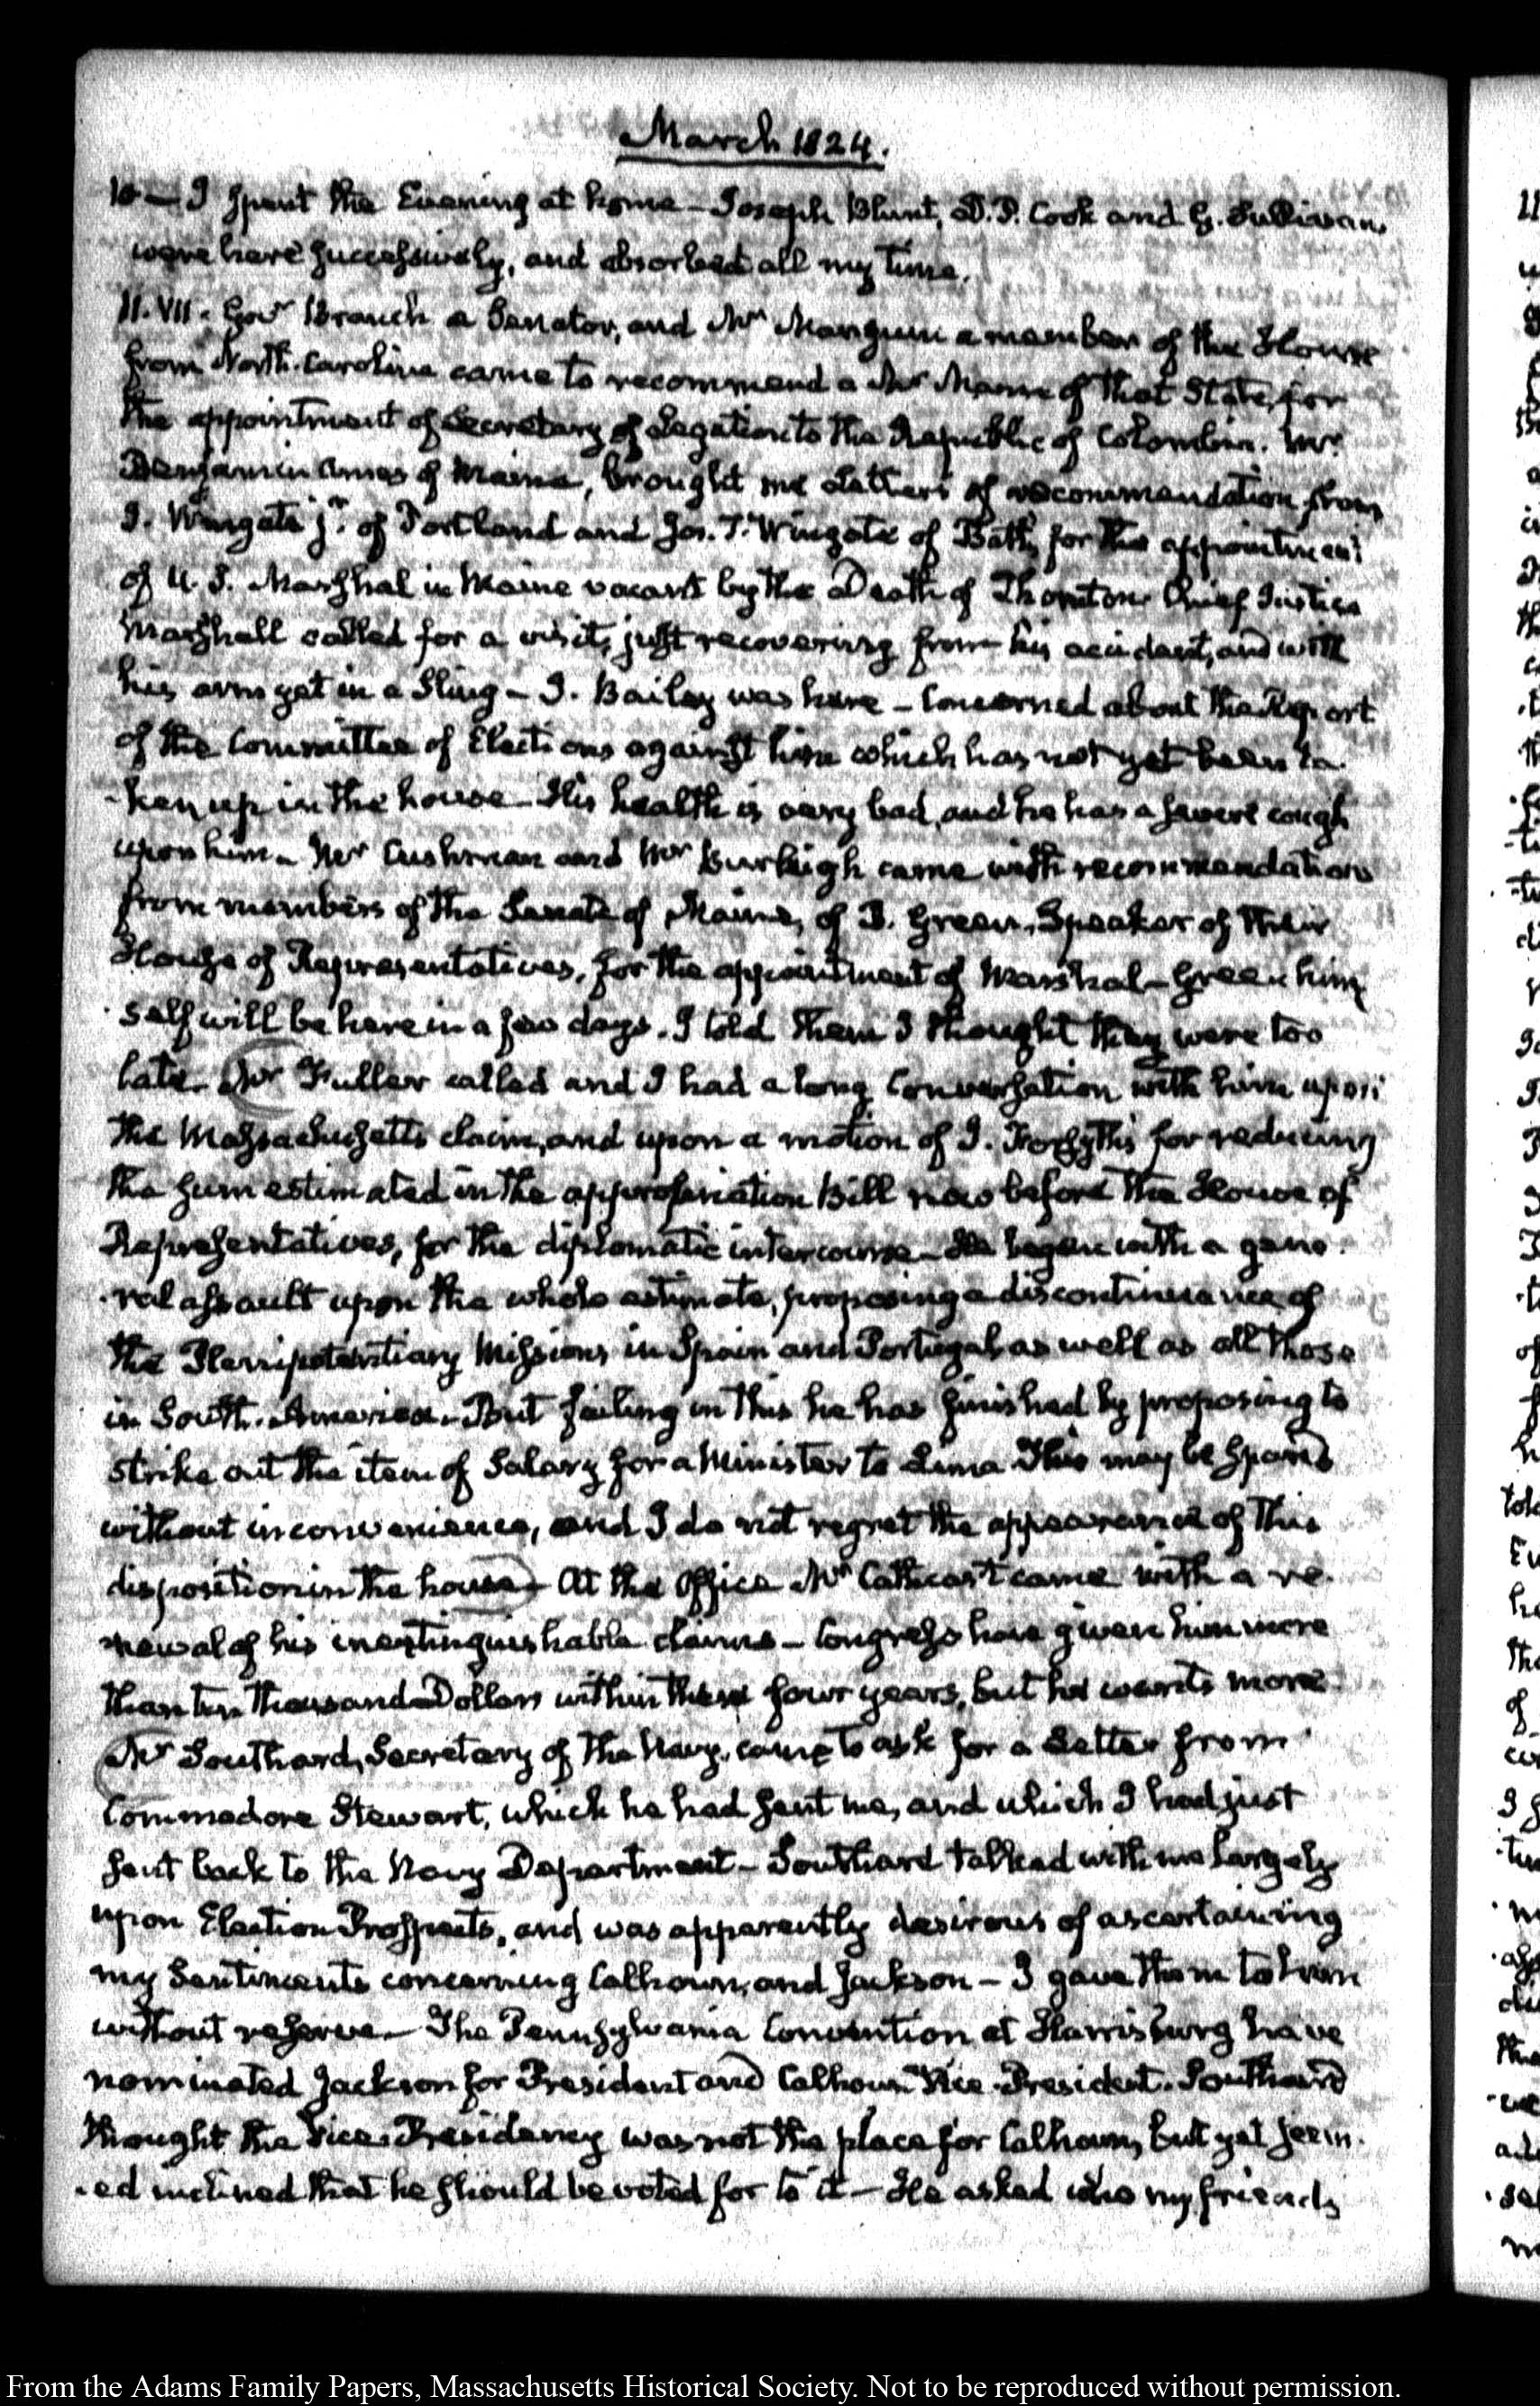 March 1824.
10 — I spent the Evening at home — Joseph Blunt, D. P. Cook and G. Sullivan
were here successively, and absorbed all my time.
11. VII. Govr Branch a Senator, and Mr Mangum a member of the House
from North-Carolina came to recommend a Mr Mann of that State, for
the appointment of Secretary of Legation to the Republic of Colombia. Mr.
Benjamin Ames of Maine, brought me Letters of recommendation from
J. Wingate jr. of Portland and Jos. F. Wingate of Bath, for the appointment
of U. S. Marshal in Maine vacant by the Death of Thornton Chief Justice
Marshall called for a visit, just recovering from his accident, and with
his arm yet in a Sling — J. Bailey was here — Concerned about the Report
of the Committee of Elections against him which has not yet been ta-
-ken up in the house — His health is very bad, and he has a severe cough
upon him — Mr Cushman and Mr Burleigh came with recommendations
from members of the Senate of Maine, of B. Green, Speaker of their
House of Representatives, for the appointment of Marshal — Green him-
-self will be here in a few days. I told them I thought they were too
late — Mr Fuller called and I had a long Conversation with him upon
the Massachusetts claim, and upon a motion of J. Forsyth's for reducing
the sum estimated in the appropriation Bill now before the House of
Representatives, for the diplomatic intercourse — He began with a gene-
-ral assault upon the whole estimate, proposing a discontinuance of
the Plenipotentiary Missions in Spain and Portugal, as well as all those
in South-America. But failing in this he has finished by proposing to
strike out the item of Salary for a Minister to Lima This may be spared
without inconvenience, and I do not regret the appearance of this
disposition in the house — At the Office Mr Cathcart came with a re-
newal of his inextinguishable claims — Congress have given him more
than ten thousand Dollars within these four years, but he wants more —
Mr Southard, Secretary of the Navy, came to ask for a Letter from
Commodore Stewart, which he had sent me, and which I had just
sent back to the Navy Department — Southard talked with me largely
upon Election Prospects, and was apparently desirous of ascertaining
my Sentiments concerning Calhoun, and Jackson — I gave them to him
without reserve — The Pennsylvania Convention at Harrisburg have
nominated Jackson for President and Calhoun Vice-President. Southard
thought the Vice-Presidency was not the place for Calhoun, but yet seem-
-ed inclined that he should be voted for to it — He asked who my friends
From the Adams Family Papers, Massachusetts Historical Society. Not to be reproduced without permission.